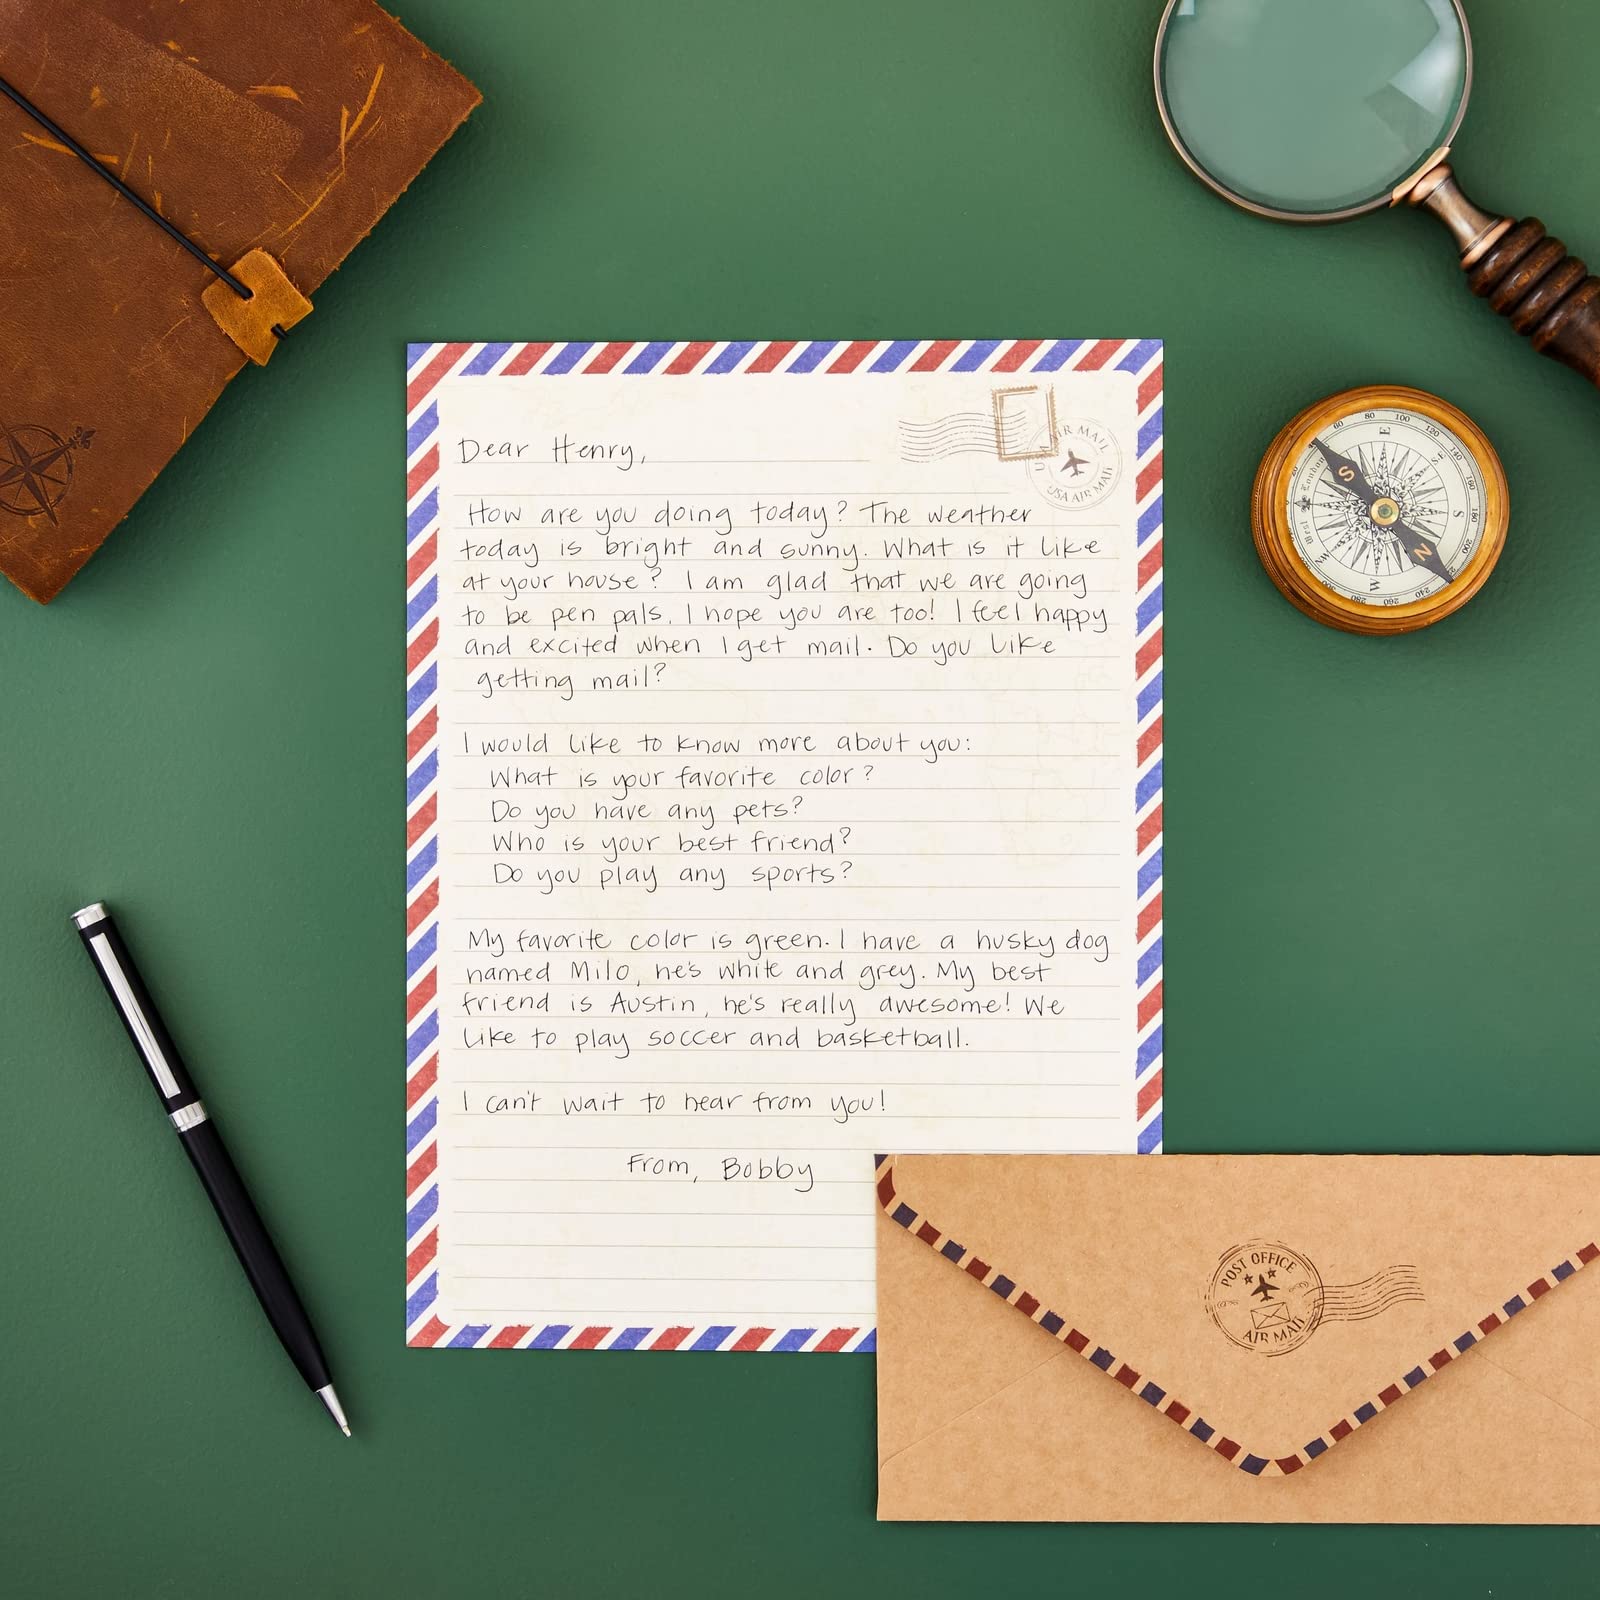 Dear Henry,
How are you doing today? The weather
today is bright and sunny. What is it like
at your house? I am glad that we are going
to be pen pals. I hope you are too! I feel happy
and excited when I get mail. Do you like
getting mail?
I would like to know more about you:
What is your favorite color?
Do you have any pets?
Who is your best friend?
Do you play any sports?
My favorite color is green. I have a husky dog
named Milo, he's white and grey. My best
friend is Austin, he's really awesome! We
like to play soccer and basketball.
I can't wait to hear from you!
From, Bobby
AIR MAIL
USA AIR MAIL
80 100 120 140 160 180 200
260 280
E
S-E
S
W
N-W
S
N
POST OFFICE
AIR MAIL